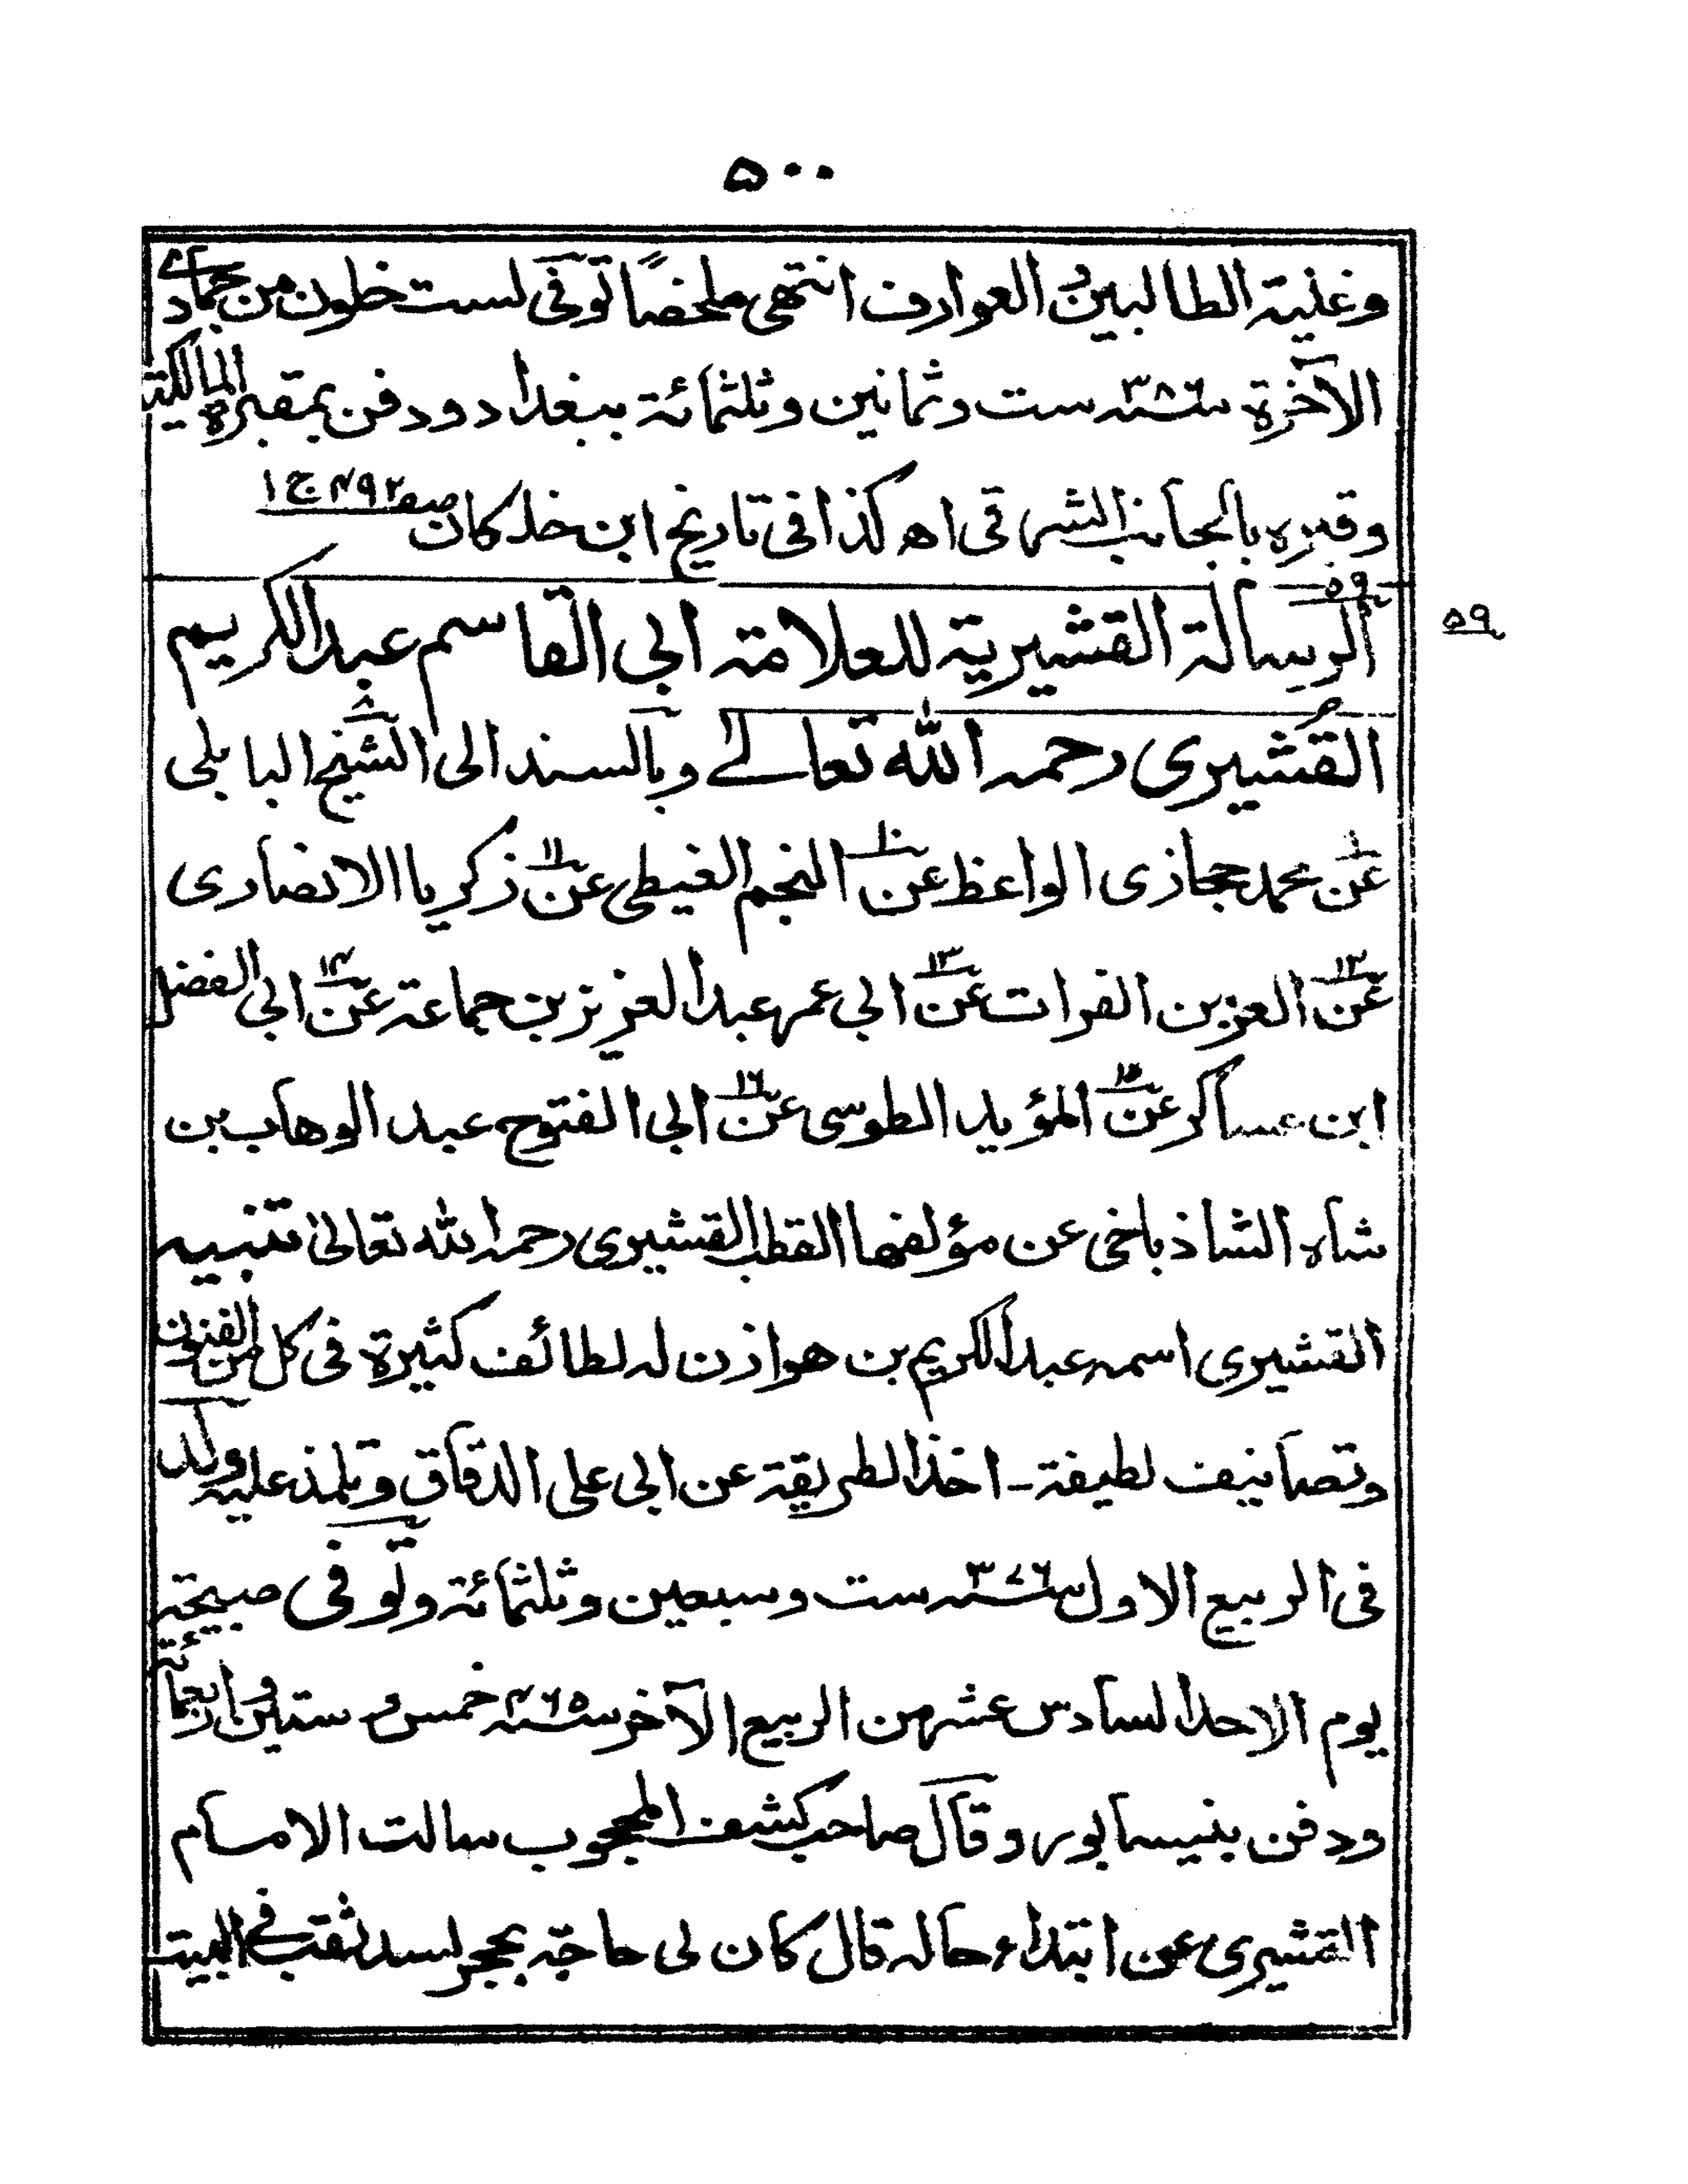 ۵۰۰
وغنية الطالبين والعوارف انتهى ملخصًا توفى لست خلون من جمادى
الآخرة سنة ۳۸۶ ست وثمانين وثلثمائة ببغداد ودفن بمقبرة المالكية
وقبره بالجانب الشرقى اھ كذا فى تاريخ ابن خلكان صفہ ۴۹۲ ج ۱
۵۹ الرسالة القشيرية للعلامة ابى القاسم عبد الكريم
۵۹
القشيرى رحمہ اللہ تعالے وبالسند الى الشيخ البابلى
عن محمد حجازى الواعظ عن النجم الغيطى عن زكريا الانصارى
عن العز بن الفرات عن ابى عمر عبد العزيز بن جماعة عن ابى الفضل
ابن عساكر عن المؤيد الطوسى عن ابى الفتوح عبد الوهاب بن
شاه الشاذياخى عن مؤلفها القطب القشيرى رحمہ اللہ تعالىٰ تنبيہ
القشيرى اسمہ عبد الكريم بن هوازن لہ لطائف كثيرة فى كل من الفنون
وتصانيف لطيفة - اخذ الطريقة عن ابى على الدقاق وتلمذ عليہ ولد
فى الربيع الاول سنة ۳۷۶ ست وسبعين وثلثمائة وتوفى صبيحة
يوم الاحد السادس عشر من الربيع الآخر سنة ۴۶۵ خمس وستين واربعمائة
ودفن بنيسابور وقال صاحب كشف المحجوب سالت الامام
القشيرى عن ابتداء حالہ قال كان لى حاجة بحجر لسد ثقب فى البيت